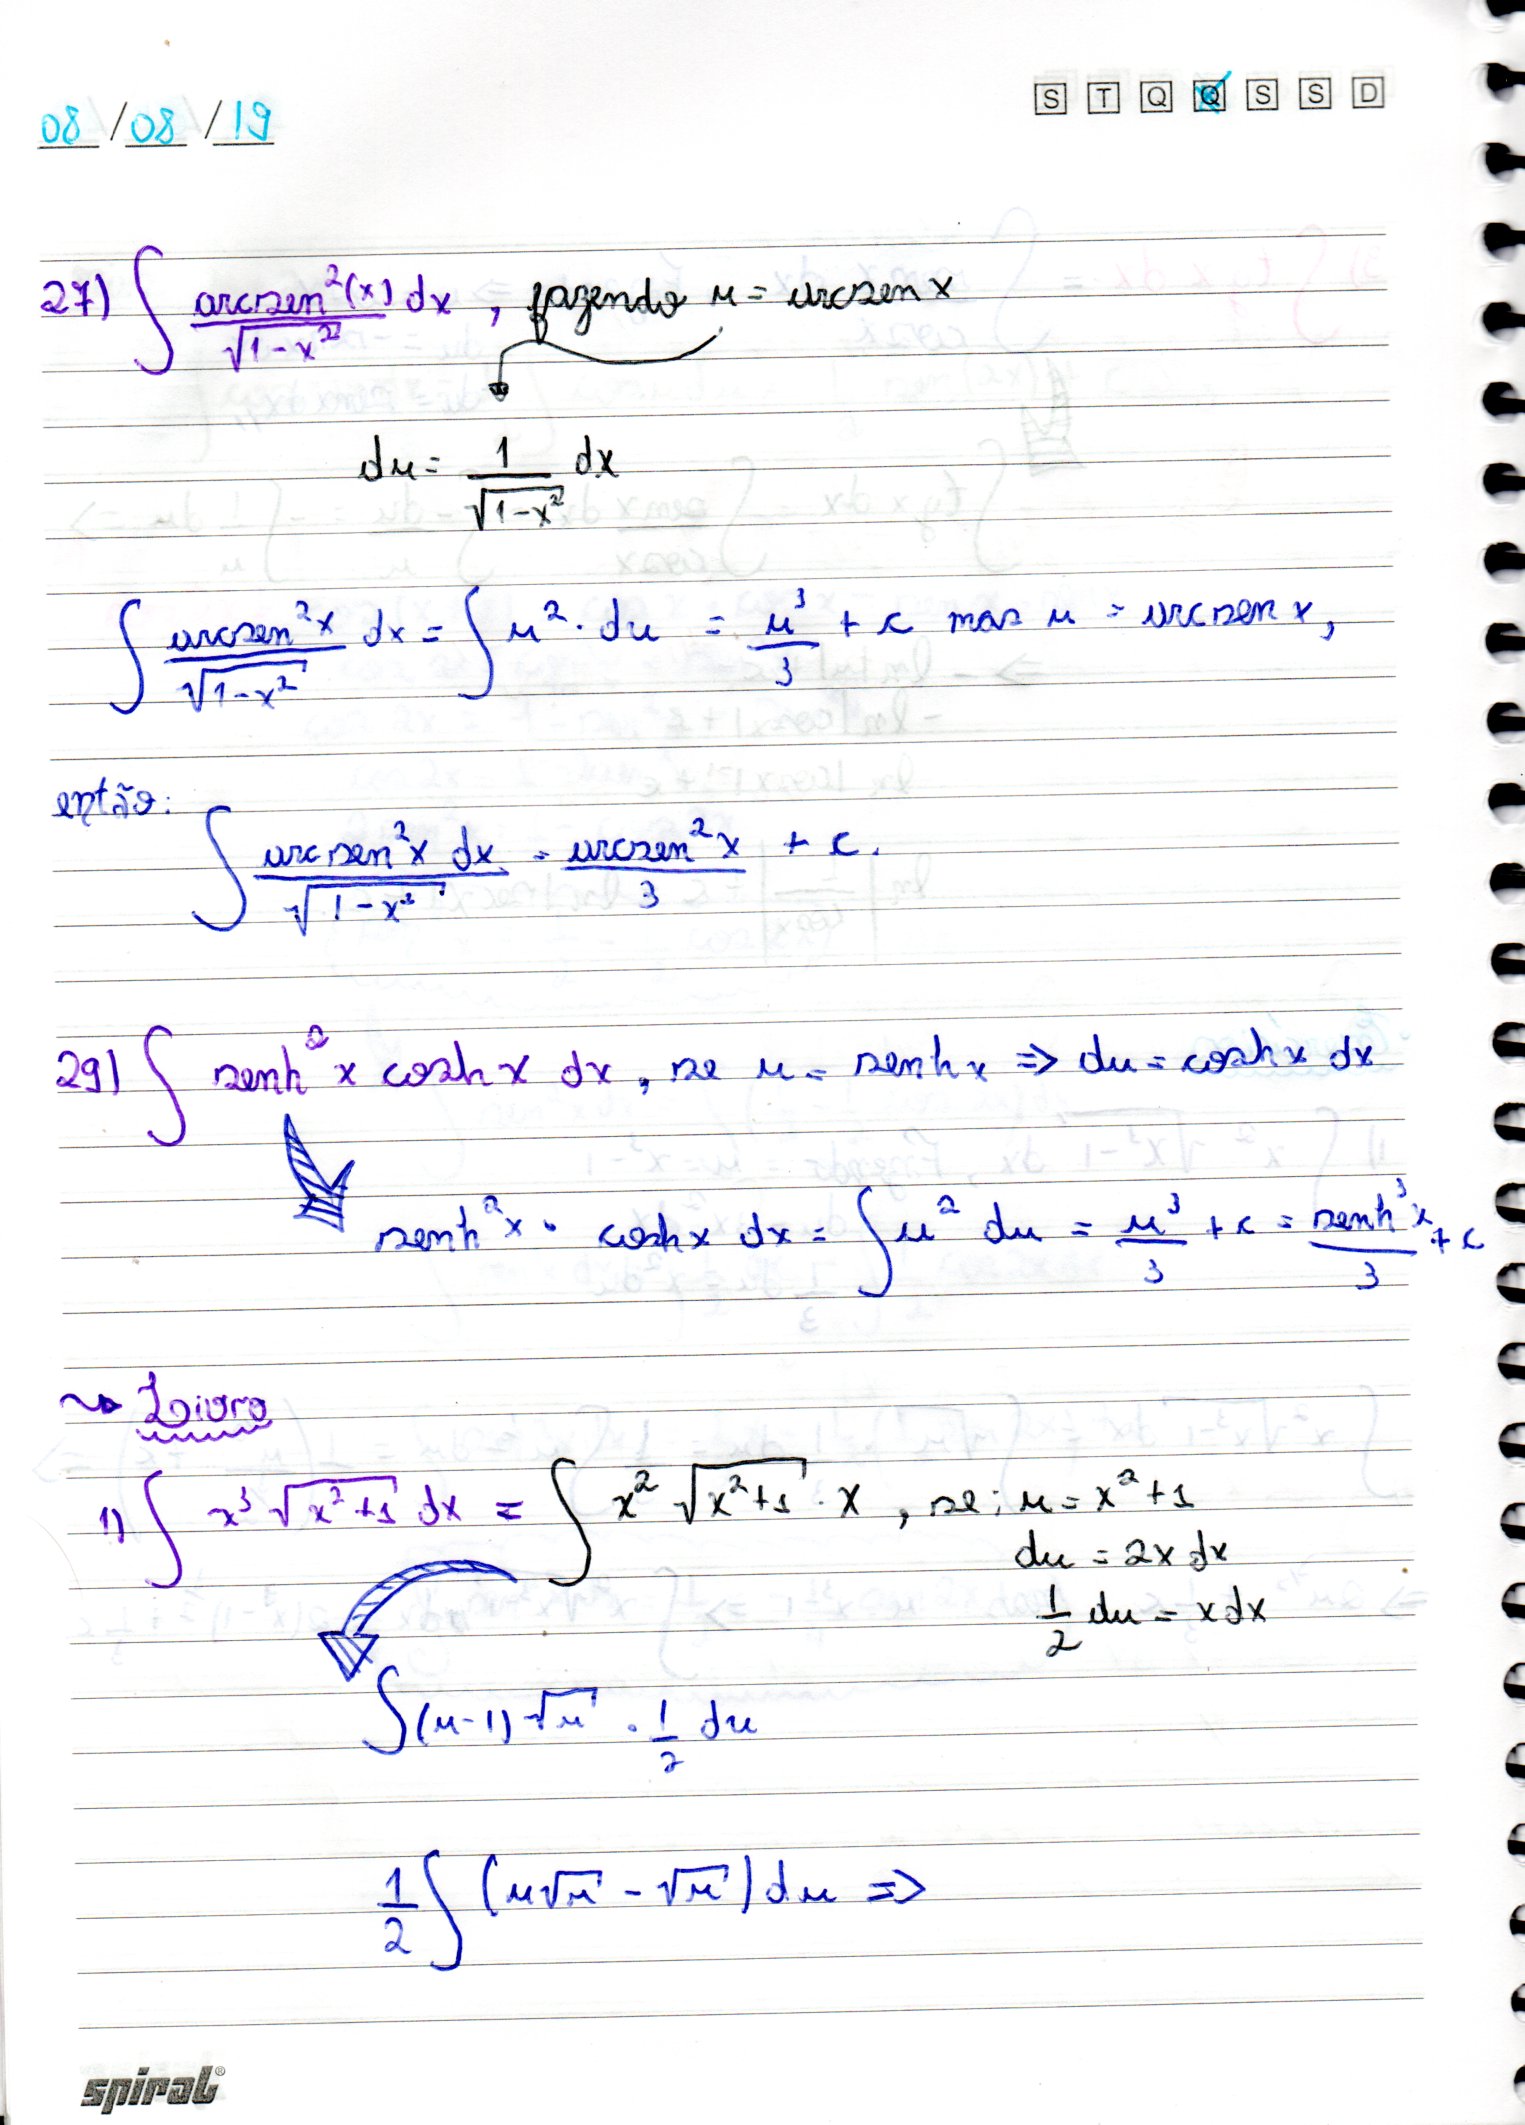 08/08/19 S T Q Q S S D
27) ∫ arcsen²(x)/√(1-x²) dx, fazendo u = arcsen x
du = 1/√(1-x²) dx
∫ arcsen²x/√(1-x²) dx = ∫ u² · du = u³/3 + c mas u = arcsen x,
então:
∫ arcsen²x dx/√(1-x²) = arcsen²x/3 + c.
29) ∫ senh²x cosh x dx, se u = senh x ⇒ du = cosh x dx
senh²x · cosh x dx = ∫ u² du = u³/3 + c = senh³x/3 + c
Livro
1) ∫ x³ √(x²+1) dx = ∫ x² √(x²+1) · x, se: u = x²+1
du = 2x dx
1/2 du = x dx
∫ (u-1) √u · 1/2 du
1/2 ∫ (u√u - √u) du ⇒
spiral®